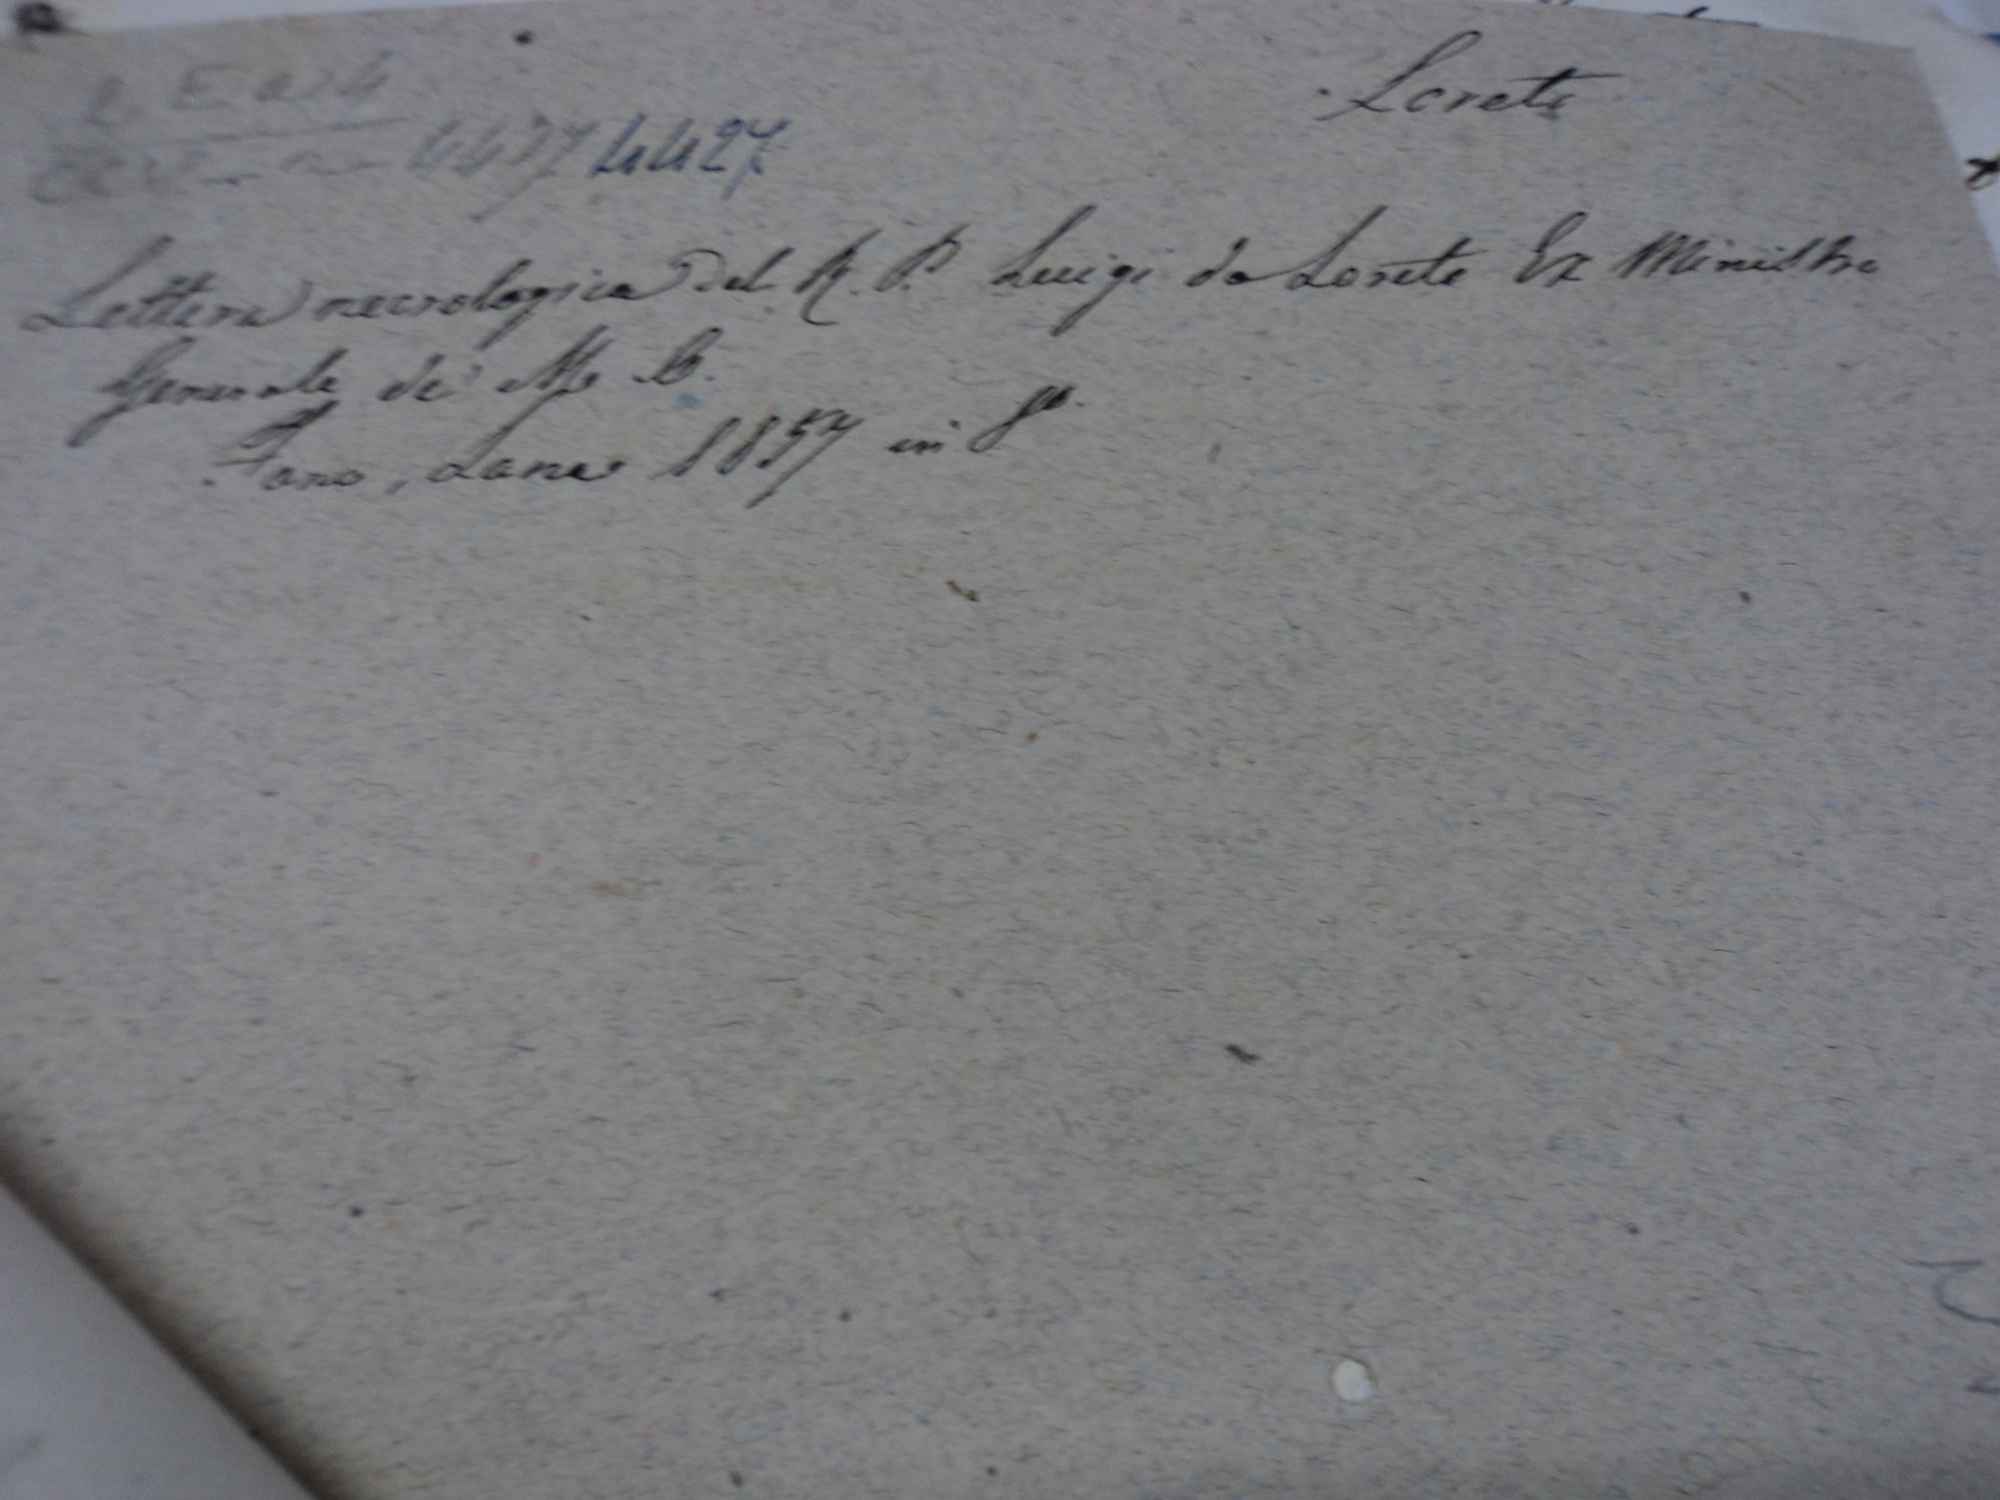 Loreto
4427 4427
Lettera necrologica del R. P. Luigi da Loreto Ex Ministro
Generale de' M. C.
Fano, Lana 1857 in 8º.